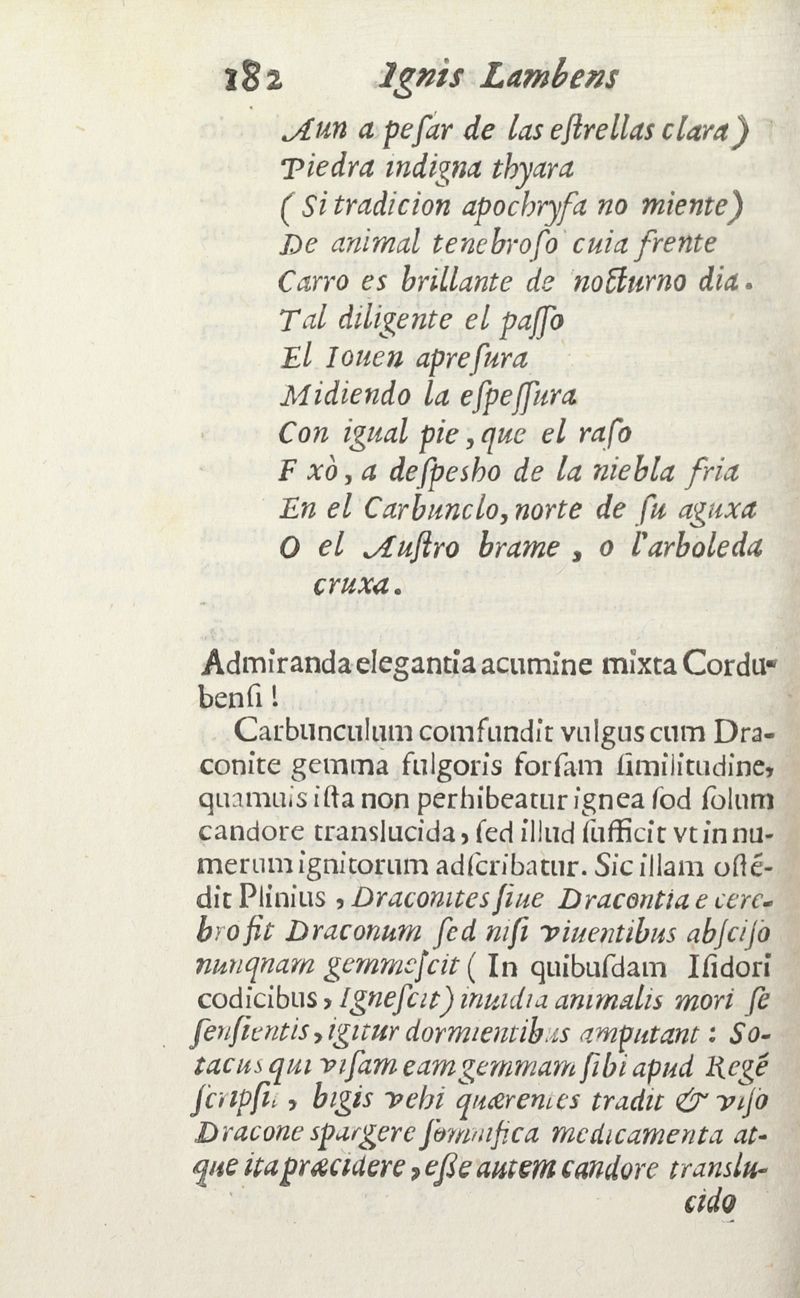 182 Ignis Lambens
Aun a peſar de las eſtrellas clara)
Piedra indigna thyara
( Si tradicion apochryfa no miente)
De animal tenebroſo cuia frente
Carro es brillante de nocturno dia.
Tal diligente el paſſo
El Iouen apreſura
Midiendo la eſpeſſura
Con igual pie, que el raſo
F xò, a deſpesho de la niebla fria
En el Carbunclo, norte de ſu aguxa
O el Auſtro brame, o l'arboleda
cruxa.
Admiranda elegantia acumine mixta Cordu-
benſi !
Carbunculum comfundit vulgus cum Dra-
conite gemma fulgoris forſam ſimilitudine,
quamuis iſta non perhibeatur ignea ſod ſolum
candore translucida, ſed illud ſufficit vt in nu-
merum ignitorum adſcribatur. Sic illam oſtẽ-
dit Plinius, Draconites ſiue Dracontia e cere-
bro fit Draconum ſed niſi viuentibus abſciſo
nunqnam gemmeſcit ( In quibuſdam Iſidori
codicibus, Igneſcit) inuidia animalis mori ſe
ſenſientis, igitur dormientibus amputant : So-
tacus qui viſam eam gemmam ſibi apud Regẽ
ſcripſit, bigis vehi quærentes tradit & viſo
Dracone spargere ſomnifica medicamenta at-
que ita præcidere, eſſe autem candore translu-
cido